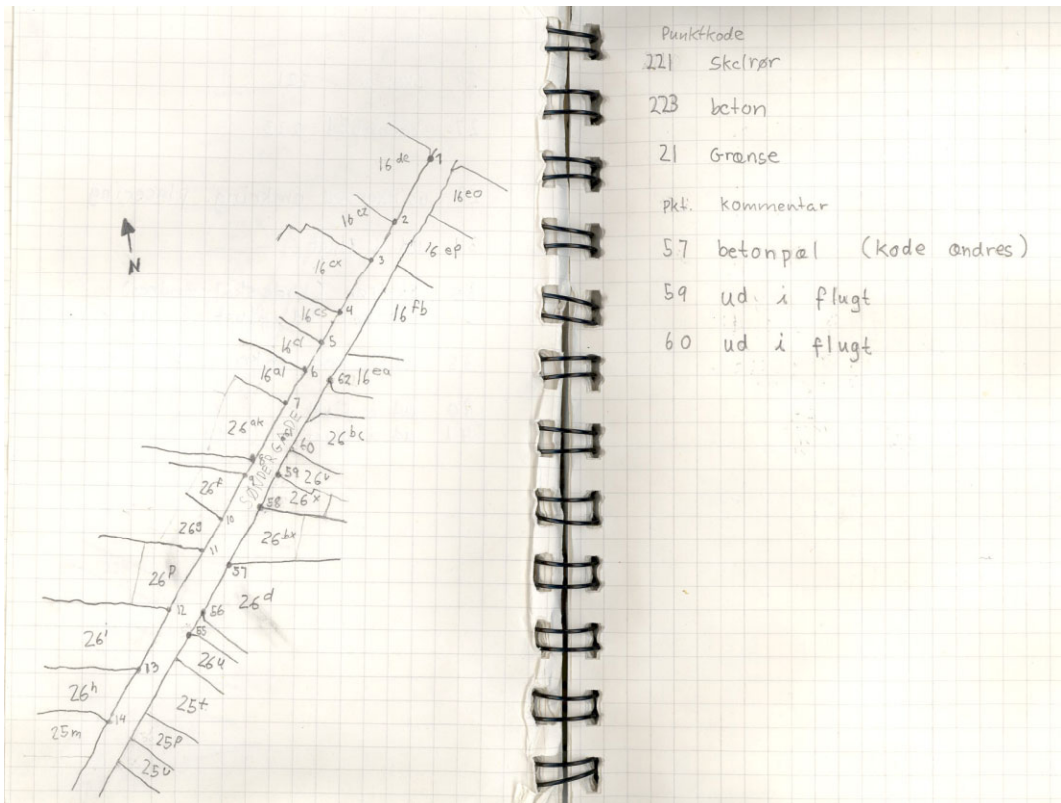 16 de
61
16 eo
16 cz
2
16 ep
16 cx
3
16 cs
4
16 fb
5
16 al
6
62
16 ea
7
26 ak
SØNDERGADE
60
26 bc
8
9
59
26 v
26 f
58
26 x
10
26 g
11
26 bx
57
26 p
12
56
26 d
55
26 i
26 u
13
26 h
25 t
14
25 m
25 p
25 u
N
Punktkode
221 Skelrør
223 beton
21 Grænse
Pkt. kommentar
57 betonpæl (kode ændres)
59 ud i flugt
60 ud i flugt